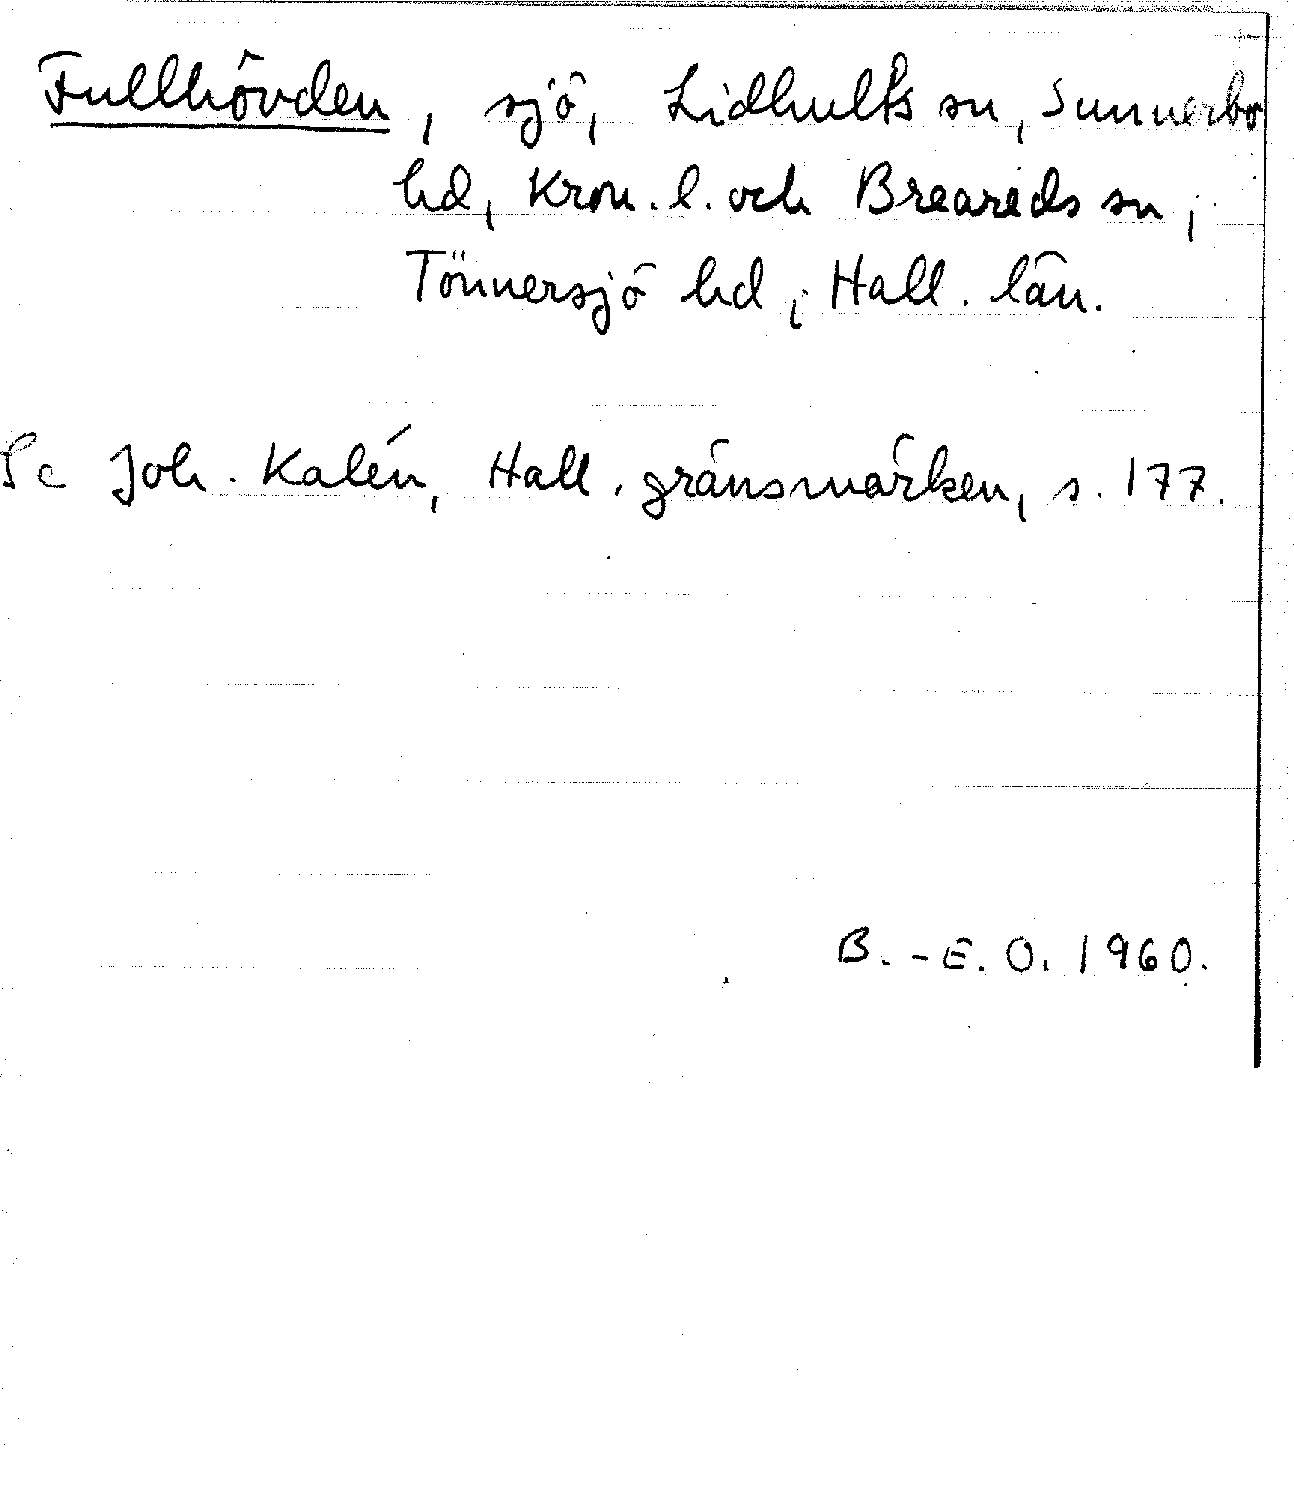 Fullhövden, sjö, Lidhults sn, Sunnerbo
hd, Kron. l. och Breareds sn,
Tönnersjö hd, Hall. län.
Se Joh. Kalén, Hall. gränsmärken, s. 177.
B.-E. O. 1960.